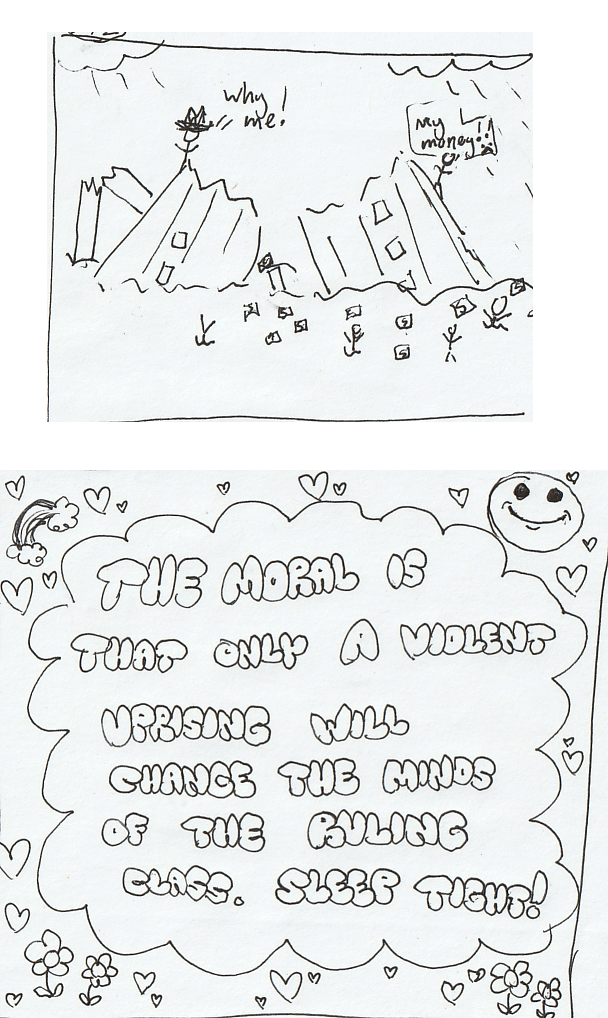 Why
me!
My
money!!
THE MORAL IS
THAT ONLY A VIOLENT
UPRISING WILL
CHANGE THE MINDS
OF THE RULING
CLASS. SLEEP TIGHT!